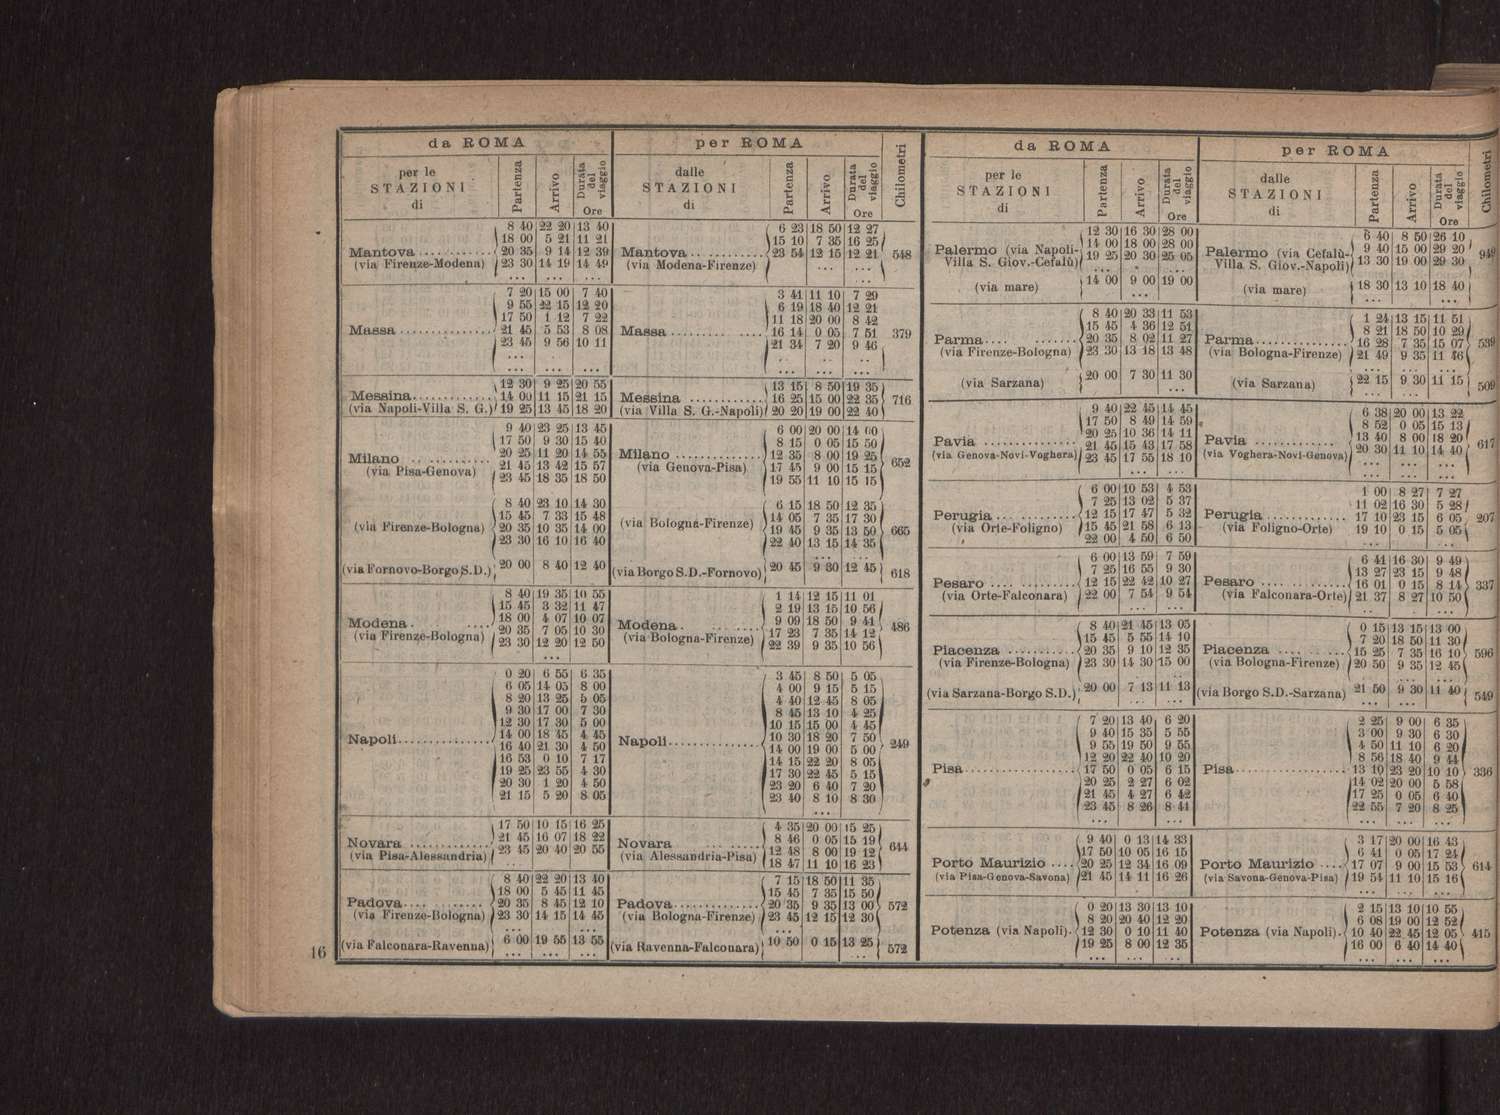 da ROMA
per le
STAZIONI
di
Partenza
Arrivo
Durata del viaggio
Ore
per ROMA
dalle
STAZIONI
di
Partenza
Arrivo
Durata del viaggio
Ore
Chilometri
Mantova
(via Firenze-Modena)
8 40 22 20 13 40
18 00 5 21 11 21
20 35 9 14 12 39
23 30 14 19 14 49
Mantova
(via Modena-Firenze)
6 23 18 50 12 27
15 10 7 35 16 25
23 54 12 15 12 21
548
Massa
7 20 15 00 7 40
9 55 22 15 12 20
17 50 1 12 7 22
21 45 5 53 8 08
23 45 9 56 10 11
Massa
3 41 11 10 7 29
6 19 18 40 12 21
11 18 20 00 8 42
16 14 0 05 7 51
21 34 7 20 9 46
379
Messina
(via Napoli-Villa S. G.)
12 30 9 25 20 55
14 00 11 15 21 15
19 25 13 45 18 20
Messina
(via Villa S. G.-Napoli)
13 15 8 50 19 35
16 25 15 00 22 35
20 20 19 00 22 40
716
Milano
(via Pisa-Genova)
9 40 23 25 13 45
17 50 9 30 15 40
20 25 11 20 14 55
21 45 13 42 15 57
23 45 18 35 18 50
Milano
(via Genova-Pisa)
6 00 20 00 14 00
8 15 0 05 15 50
12 35 8 00 19 25
17 45 9 00 15 15
19 55 11 10 15 15
652
(via Firenze-Bologna)
8 40 23 10 14 30
15 45 7 33 15 48
20 35 10 35 14 00
23 30 16 10 16 40
(via Bologna-Firenze)
6 15 18 50 12 35
14 05 7 35 17 30
19 45 9 35 13 50
22 40 13 15 14 35
665
(via Fornovo-Borgo S.D.)
20 00 8 40 12 40
(via Borgo S.D.-Fornovo)
20 45 9 30 12 45
618
Modena
(via Firenze-Bologna)
8 40 19 35 10 55
15 45 3 32 11 47
18 00 4 07 10 07
20 35 7 05 10 30
23 30 12 20 12 50
Modena
(via Bologna-Firenze)
1 14 12 15 11 01
2 19 13 15 10 56
9 09 18 50 9 41
17 23 7 35 14 12
22 39 9 35 10 56
486
Napoli
0 20 6 55 6 35
6 05 14 05 8 00
8 20 13 25 5 05
9 30 17 00 7 30
12 30 17 30 5 00
14 00 18 45 4 45
16 40 21 30 4 50
16 53 0 10 7 17
19 25 23 55 4 30
20 30 1 20 4 50
21 15 5 20 8 05
Napoli
3 45 8 50 5 05
4 00 9 15 5 15
4 40 12 45 8 05
8 45 13 10 4 25
10 15 15 00 4 45
10 30 18 20 7 50
14 00 19 00 5 00
14 15 22 20 8 05
17 30 22 45 5 15
23 20 6 40 7 20
23 40 8 10 8 30
249
Novara
(via Pisa-Alessandria)
17 50 10 15 16 25
21 45 16 07 18 22
23 45 20 40 20 55
Novara
(via Alessandria-Pisa)
4 35 20 00 15 25
8 46 0 05 15 19
12 48 8 00 19 12
18 47 11 10 16 23
644
Padova
(via Firenze-Bologna)
8 40 22 20 13 40
18 00 5 45 11 45
20 35 8 45 12 10
23 30 14 15 14 45
Padova
(via Bologna-Firenze)
7 15 18 50 11 35
15 45 7 35 15 50
20 35 9 35 13 00
23 45 12 15 12 30
572
(via Falconara-Ravenna)
6 00 19 55 13 55
(via Ravenna-Falconara)
10 50 0 15 13 25
572
16
da ROMA
per le
STAZIONI
di
Partenza
Arrivo
Durata del viaggio
Ore
per ROMA
dalle
STAZIONI
di
Partenza
Arrivo
Durata del viaggio
Ore
Chilometri
Palermo (via Napoli-
Villa S. Giov.-Cefalù)
12 30 16 30 28 00
14 00 18 00 28 00
19 25 20 30 25 05
Palermo (via Cefalù-
Villa S. Giov.-Napoli)
6 40 8 50 26 10
9 40 15 00 29 20
13 30 19 00 29 30
949
(via mare)
14 00 9 00 19 00
(via mare)
18 30 13 10 18 40
Parma
(via Firenze-Bologna)
8 40 20 33 11 53
15 45 4 36 12 51
20 35 8 02 11 27
23 30 13 18 13 48
Parma
(via Bologna-Firenze)
1 24 13 15 11 51
8 21 18 50 10 29
16 28 7 35 15 07
21 49 9 35 11 46
539
(via Sarzana)
20 00 7 30 11 30
(via Sarzana)
22 15 9 30 11 15
509
Pavia
(via Genova-Novi-Voghera)
9 40 22 45 14 45
17 50 8 49 14 59
20 25 10 36 14 11
21 45 15 43 17 58
23 45 17 55 18 10
Pavia
(via Voghera-Novi-Genova)
6 38 20 00 13 22
8 52 0 05 15 13
13 40 8 00 18 20
20 30 11 10 14 40
617
Perugia
(via Orte-Foligno)
6 00 10 53 4 53
7 25 13 02 5 37
12 15 17 47 5 32
15 45 21 58 6 13
22 00 4 50 6 50
Perugia
(via Foligno-Orte)
1 00 8 27 7 27
11 02 16 30 5 28
17 10 23 15 6 05
19 10 0 15 5 05
207
Pesaro
(via Orte-Falconara)
6 00 13 59 7 59
7 25 16 55 9 30
12 15 22 42 10 27
22 00 7 54 9 54
Pesaro
(via Falconara-Orte)
6 41 16 30 9 49
13 27 23 15 9 48
16 01 0 15 8 14
21 37 8 27 10 50
337
Piacenza
(via Firenze-Bologna)
8 40 21 45 13 05
15 45 5 55 14 10
20 35 9 10 12 35
23 30 14 30 15 00
Piacenza
(via Bologna-Firenze)
0 15 13 15 13 00
7 20 18 50 11 30
15 25 7 35 16 10
20 50 9 35 12 45
596
(via Sarzana-Borgo S.D.)
20 00 7 13 11 13
(via Borgo S.D.-Sarzana)
21 50 9 30 11 40
549
Pisa
7 20 13 40 6 20
9 40 15 35 5 55
9 55 19 50 9 55
12 20 22 40 10 20
17 50 0 05 6 15
20 25 2 27 6 02
21 45 4 27 6 42
23 45 8 26 8 41
Pisa
2 25 9 00 6 35
3 00 9 30 6 30
4 50 11 10 6 20
8 56 18 40 9 44
13 10 23 20 10 10
14 02 20 00 5 58
17 25 0 05 6 40
22 55 7 20 8 25
336
Porto Maurizio
(via Pisa-Genova-Savona)
9 40 0 13 14 33
17 50 10 05 16 15
20 25 12 34 16 09
21 45 14 11 16 26
Porto Maurizio
(via Savona-Genova-Pisa)
3 17 20 00 16 43
6 41 0 05 17 24
17 07 9 00 15 53
19 54 11 10 15 16
614
Potenza (via Napoli)
0 20 13 30 13 10
8 20 20 40 12 20
12 30 0 10 11 40
19 25 8 00 12 35
Potenza (via Napoli)
2 15 13 10 10 55
6 08 19 00 12 52
10 40 22 45 12 05
16 00 6 40 14 40
415